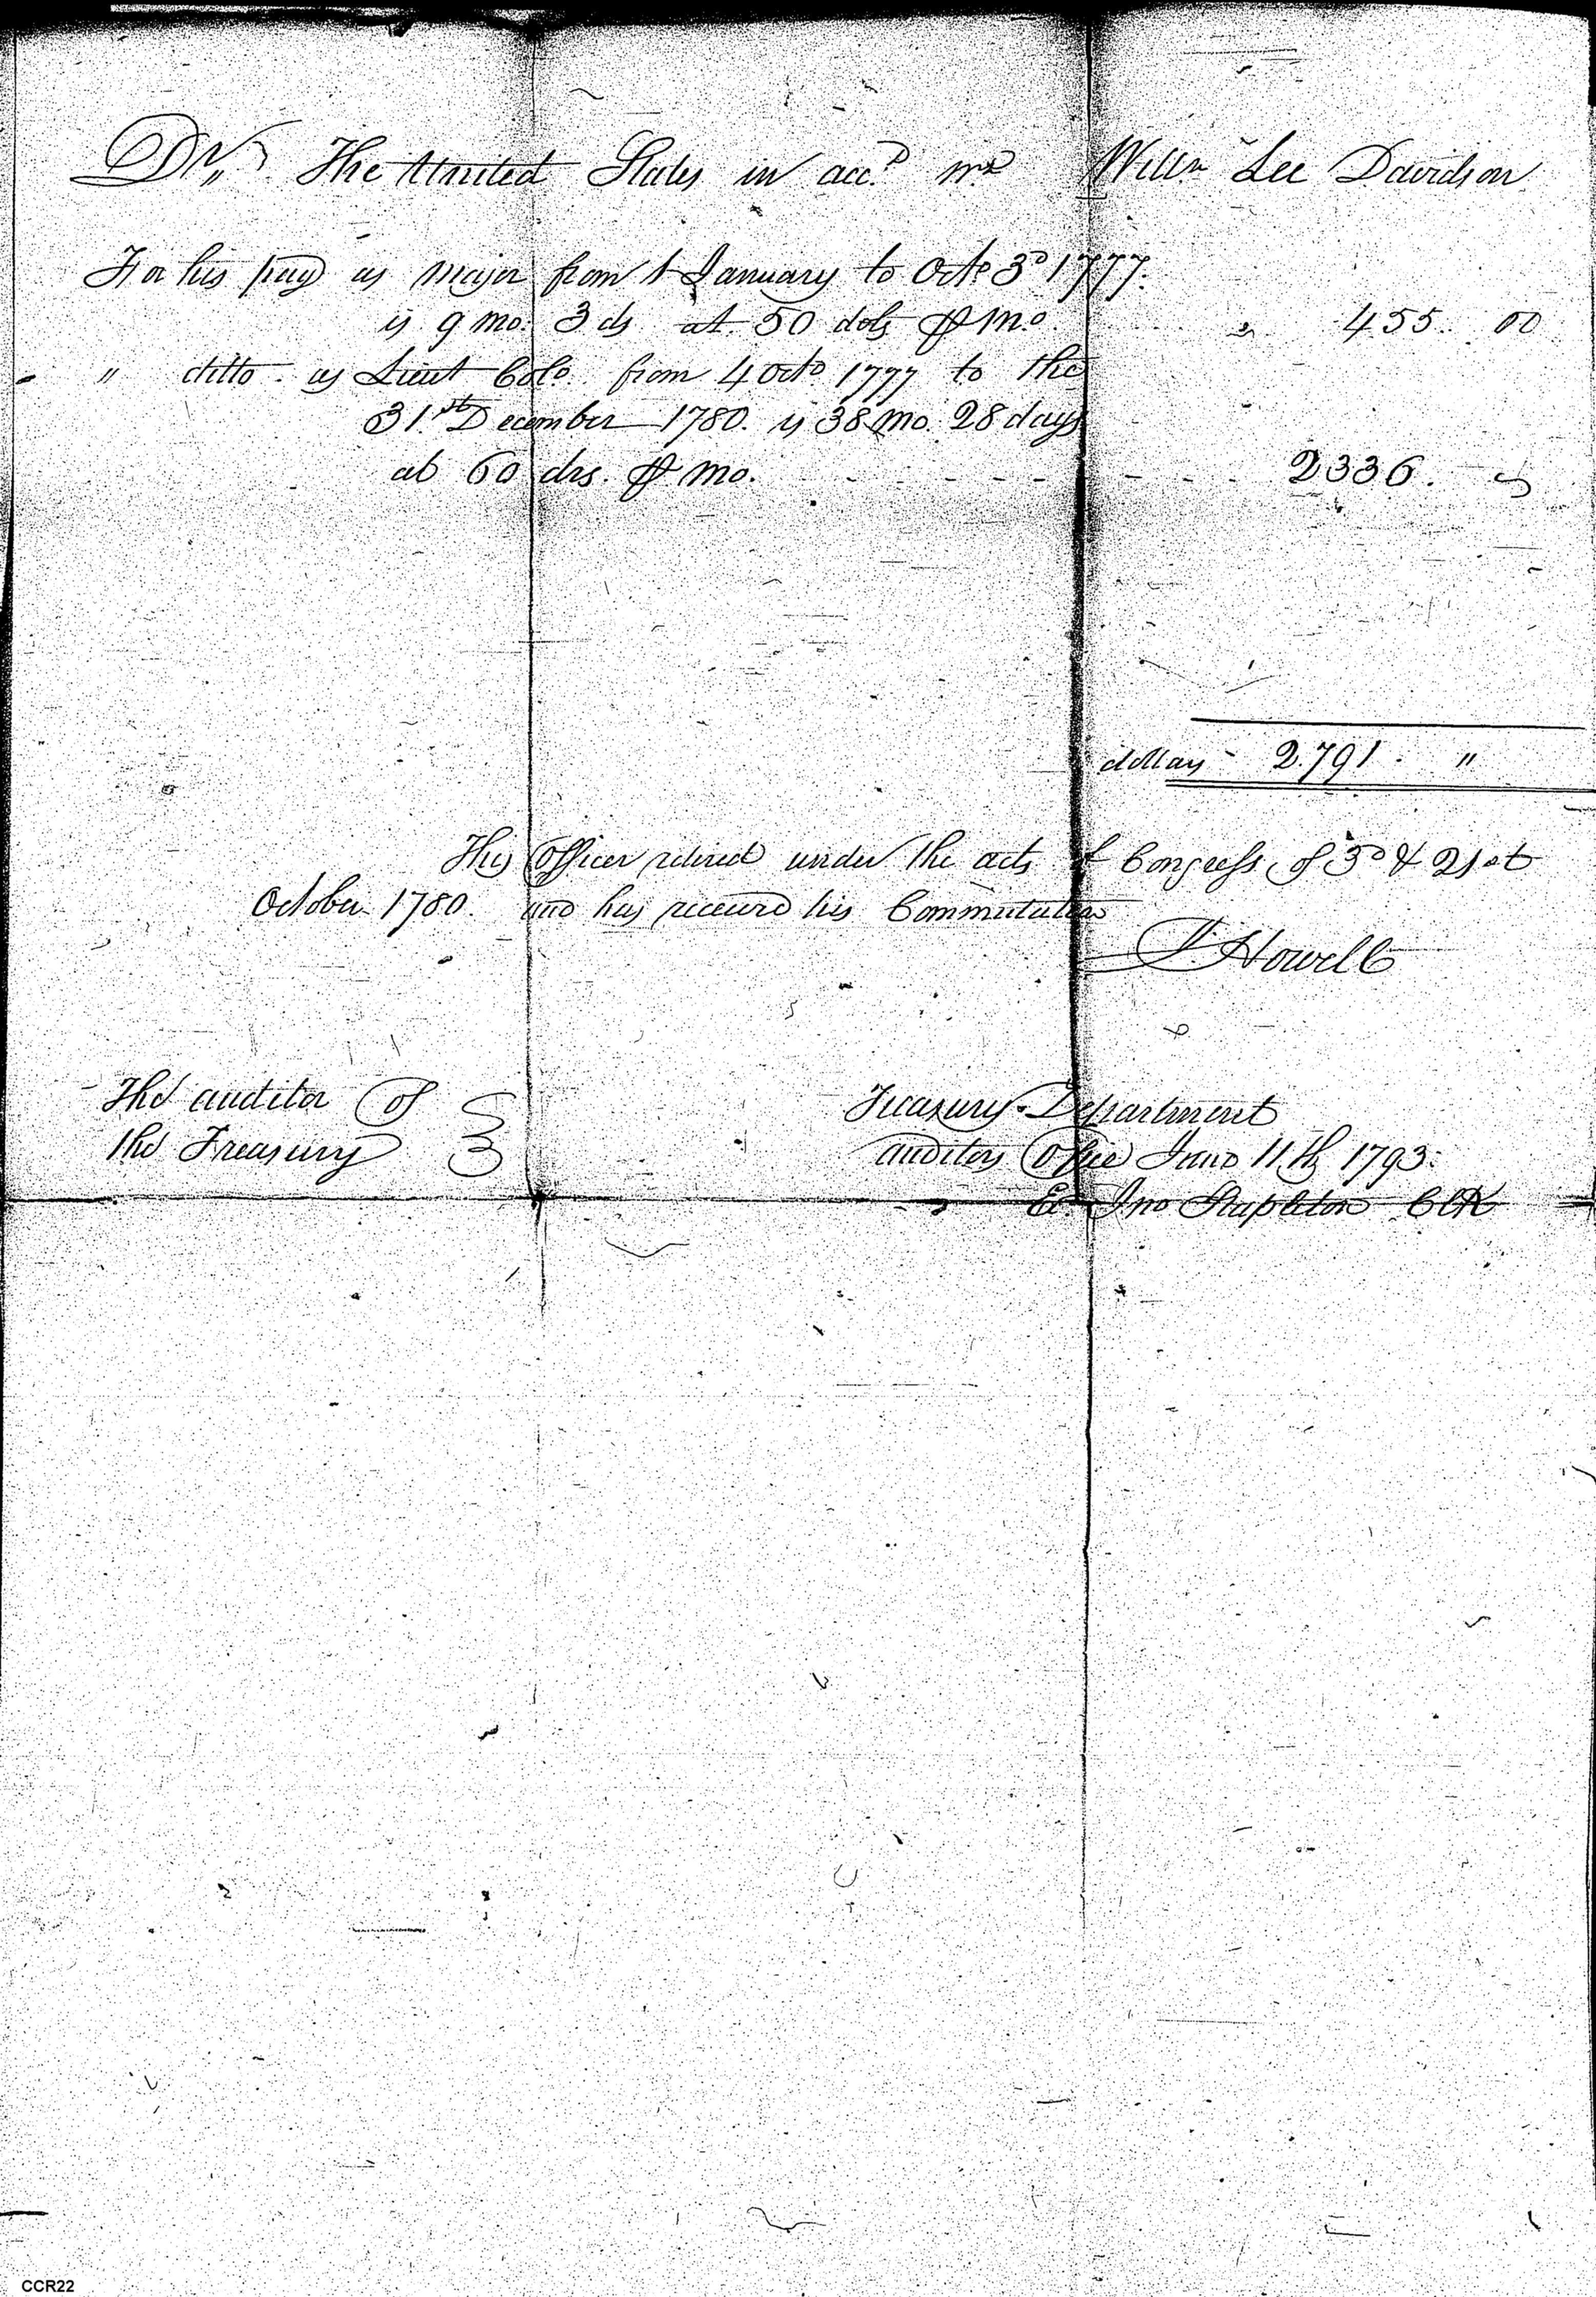 Dr. The United States in acct. wt Willm Lee Davidson
For his pay as Major from 1 January to Octo 3d 1777.
is 9 mo. 3 ds at 50 dols ⅌ mo. " 455. 00
" ditto as Lieut Colo. from 4 Octo 1777 to the
31.st December 1780. is 38 mo. 28 days
at 60 drs. ⅌ mo. - - - - - - - - - 2336. "
dollars - 2.791. "
This Officer retired under the acts of Congress of 3d & 21st
October 1780. and has received his Commutation
J. Howell
The auditor of
the Treasury
Treasury Department
auditors Office June 11th 1793.
Ex. Jno Stapleton Clk
CCR22